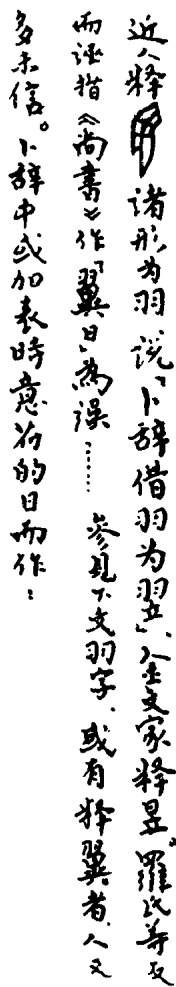 近人释諸形为羽，说「卜辞借羽为翌」，金文家释昱。羅氏等反
而诬指《尚書》作「翼日」為误……参見下文羽字，或有释翼者，人又
多未信。卜辞中或加表時意符的日而作：